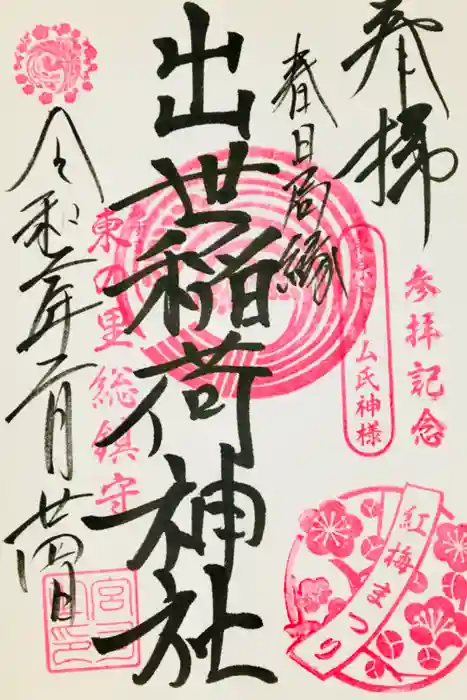 奉拝
参拝記念
ム氏神様
春日局縁
出世稲荷神社
東の里総鎮守
令和二年二月廿四日
紅梅まつり